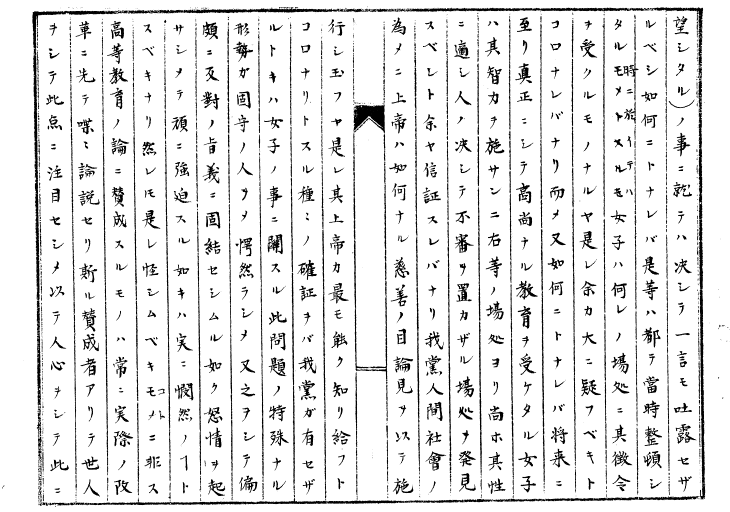 望シタル)ノ事ニ就テハ決シテ一言モ吐露セザ
ルベシ如何ニトナレバ是等ハ都テ當時整頓シ
タルモノトスルモ時ニ於イテハ女子ハ何レノ場処ニ其徴令
ヲ受クルモノナルヤ是レ余カ大ニ疑フベキト
コロナレバナリ而メ又如何ニトナレバ将来ニ
至リ真正ニシテ高尚ナル教育ヲ受ケタル女子
ハ其智力ヲ施サンニ右等ノ場処ヨリ尚ホ其性
ニ適シ人ノ決シテ不審ヲ置カザル場処ヲ発見
スベント余ヤ信証スレバナリ我黨人間社會ノ
為メニ上帝ハ如何ナル慈善ノ目論見ヲ以テ施
行シ玉フヤ是レ其上帝カ最モ能ク知リ給フト
コロナリトスル種ミノ確証ヲバ我黨ガ有セザ
ルトキハ女子ノ事ニ関スル此問題ノ特殊ナル
形勢ガ固守ノ人ヲメ愕然ラシメ又之ヲシテ偏
頗ニ反對ノ旨義ニ固結セシムル如ク怒情ヲ起
サシメテ頑ニ強迫スル如キハ実ニ憫然ノヿト
スベキナリ然レモ是レ怪シムベキモノコトニ非ス
高等教育ノ論ニ賛成スルモノハ常ニ実際ノ改
革ニ先テ喋ミ論説セリ斯ル賛成者アリテ世人
ヲシテ此点ニ注目セシメ以テ人心ヲシテ此ニ